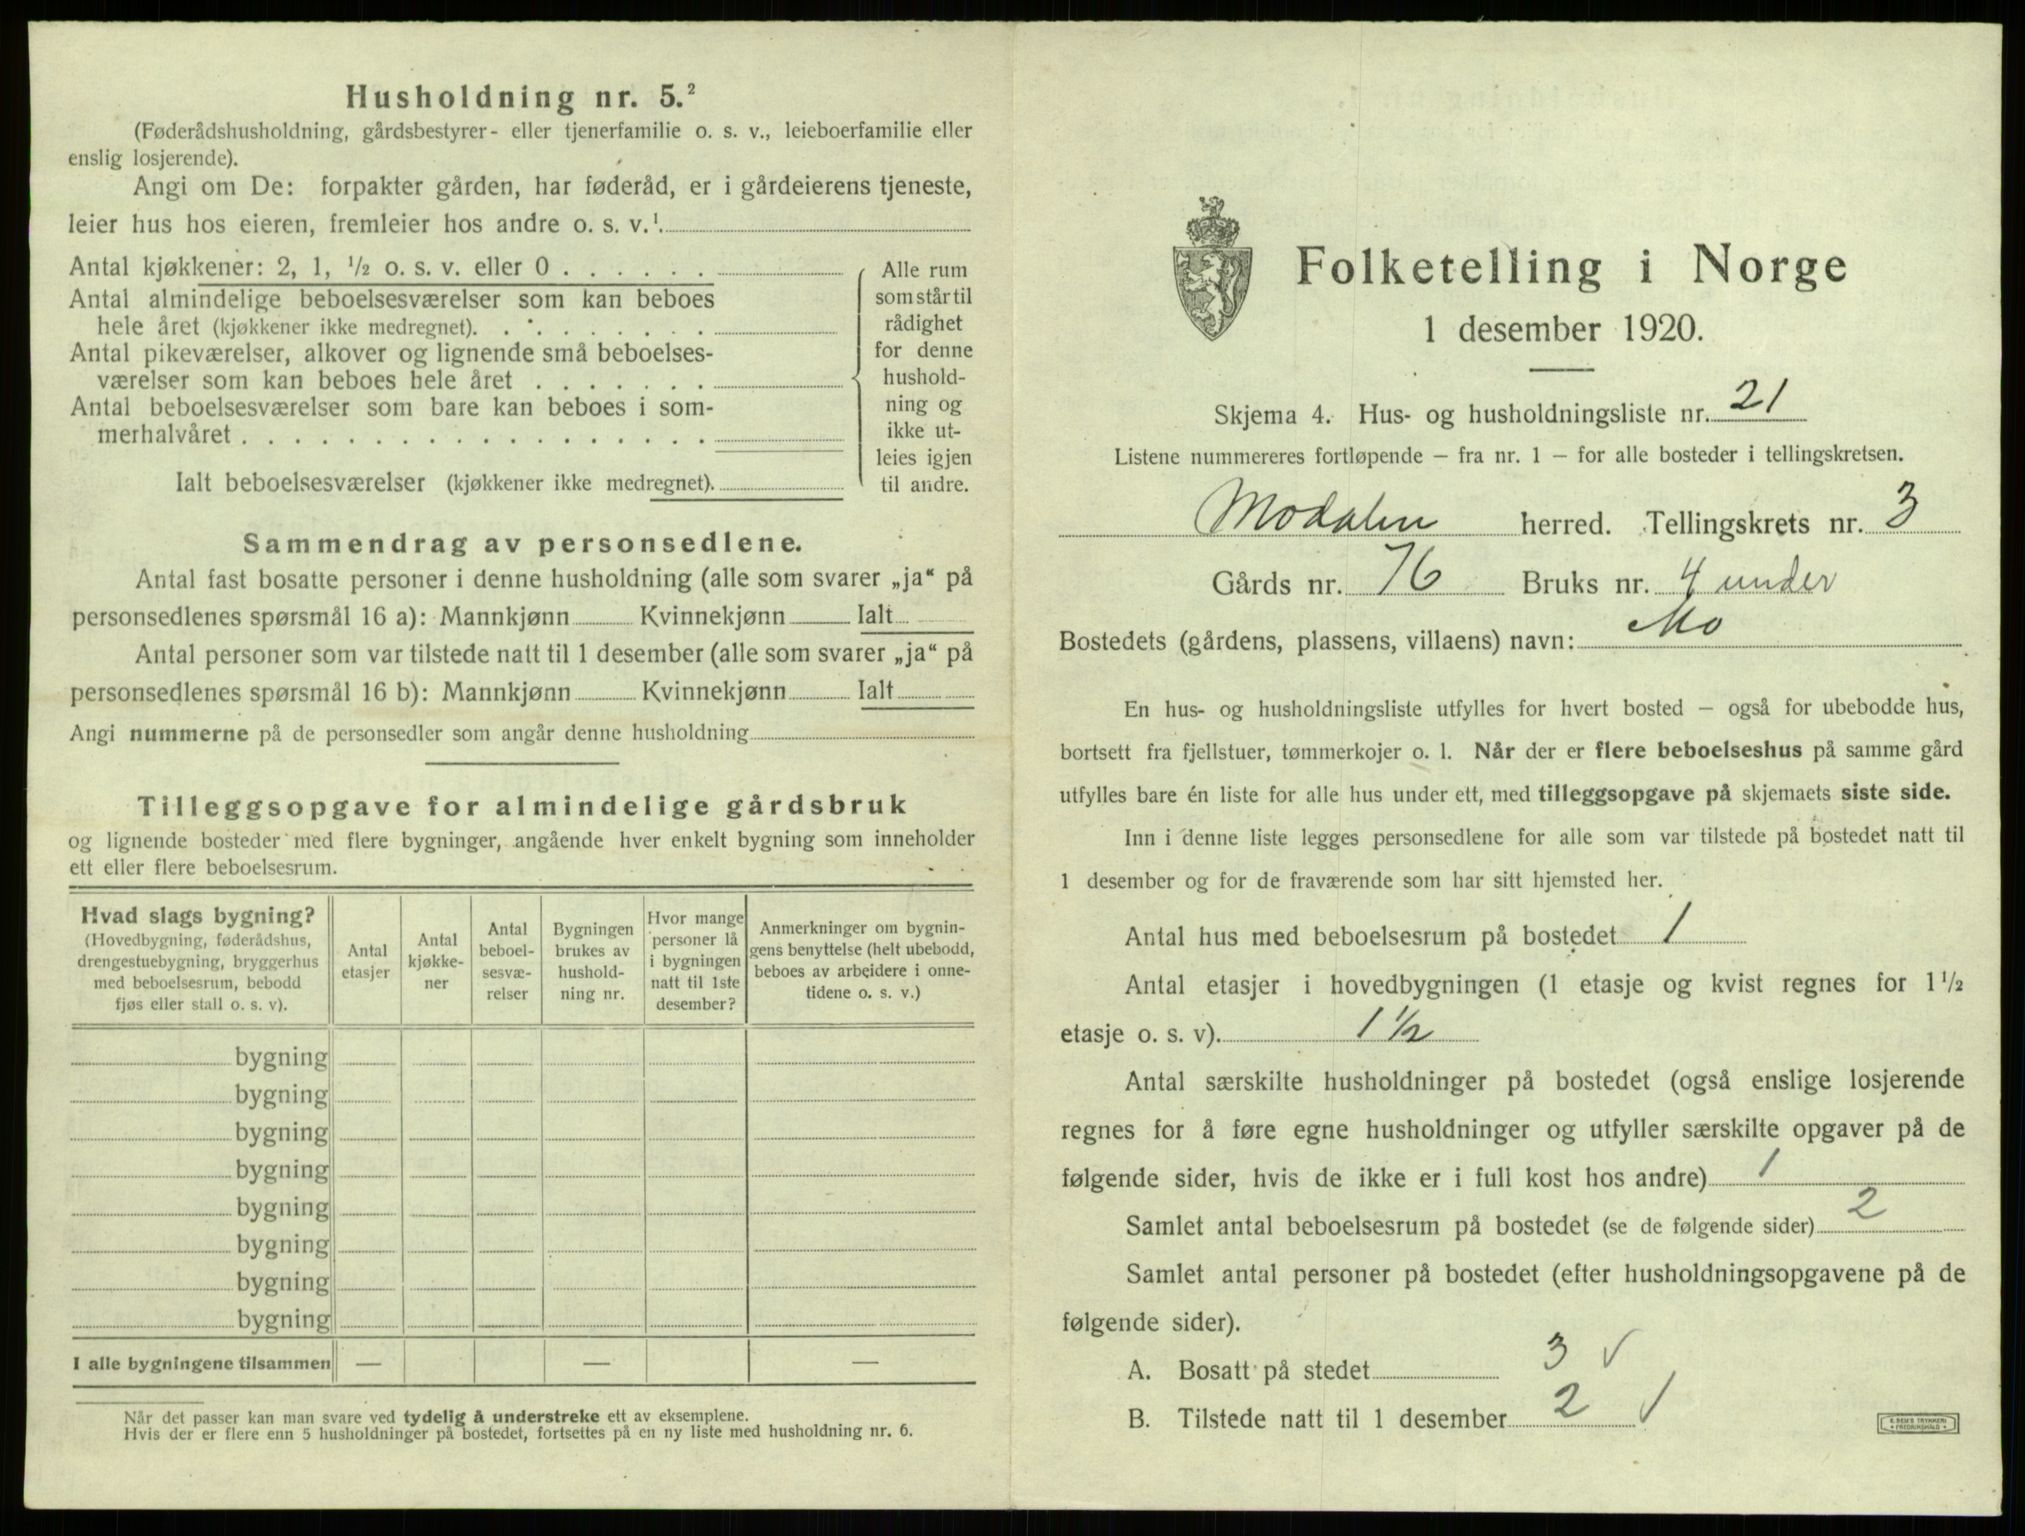 Husholdning nr. 5.²
(Føderådshusholdning, gårdsbestyrer- eller tjenerfamilie o. s. v., leieboerfamilie eller
enslig losjerende).
Angi om De: forpakter gården, har føderåd, er i gårdeierens tjeneste,
leier hus hos eieren, fremleier hos andre o. s. v.¹
Antal kjøkkener: 2, 1, ½ o. s. v. eller 0 . . . . . .
Antal almindelige beboelsesværelser som kan beboes
hele året (kjøkkener ikke medregnet). . . . . . . . .
Antal pikeværelser, alkover og lignende små beboelses-
værelser som kan beboes hele året . . . . . . .
Antal beboelsesværelser som bare kan beboes i som-
merhalvåret . . . . . . . . . . . . . . . . . .
Ialt beboelsesværelser (kjøkkener ikke medregnet).
Alle rum
som står til
rådighet
for denne
hushold-
ning og
ikke ut-
leies igjen
til andre.
Sammendrag av personsedlene.
Antal fast bosatte personer i denne husholdning (alle som svarer „ja“ på
personsedlenes spørsmål 16 a): Mannkjønn Kvinnekjønn Ialt
Antal personer som var tilstede natt til 1 desember (alle som svarer „ja“ på
personsedlenes spørsmål 16 b): Mannkjønn Kvinnekjønn Ialt
Angi nummerne på de personsedler som angår denne husholdning
Tilleggsopgave for almindelige gårdsbruk
og lignende bosteder med flere bygninger, angående hver enkelt bygning som inneholder
ett eller flere beboelsesrum.
Hvad slags bygning?
(Hovedbygning, føderådshus,
drengestuebygning, bryggerhus
med beboelsesrum, bebodd
fjøs eller stall o. s. v).
Antal
etasjer
Antal
kjøkke-
ner
Antal
beboel-
sesvæ-
relser
Bygningen
brukes av
hushold-
ning nr.
Hvor mange
personer lå
i bygningen
natt til 1ste
desember?
Anmerkninger om bygnin-
gens benyttelse (helt ubebodd,
beboes av arbeidere i onne-
tidene o. s. v.)
bygning
bygning
bygning
bygning
bygning
bygning
bygning
bygning
I alle bygningene tilsammen — — —
Når det passer kan man svare ved tydelig å understreke ett av eksemplene.
Hvis der er flere enn 5 husholdninger på bostedet, fortsettes på en ny liste med husholdning nr. 6.
Folketelling i Norge
1 desember 1920.
Skjema 4. Hus- og husholdningsliste nr. 21
Listene nummereres fortløpende – fra nr. 1 – for alle bosteder i tellingskretsen.
Modalen herred. Tellingskrets nr. 3
Gårds nr. 76 Bruks nr. 4 under
Bostedets (gårdens, plassens, villaens) navn: Mo
En hus- og husholdningsliste utfylles for hvert bosted – også for ubebodde hus,
bortsett fra fjellstuer, tømmerkojer o. l. Når der er flere beboelseshus på samme gård
utfylles bare én liste for alle hus under ett, med tilleggsopgave på skjemaets siste side.
Inn i denne liste legges personsedlene for alle som var tilstede på bostedet natt til
1 desember og for de fraværende som har sitt hjemsted her.
Antal hus med beboelsesrum på bostedet 1
Antal etasjer i hovedbygningen (1 etasje og kvist regnes for 1½
etasje o. s. v). 1½
Antal særskilte husholdninger på bostedet (også enslige losjerende
regnes for å føre egne husholdninger og utfyller særskilte opgaver på de
følgende sider, hvis de ikke er i full kost hos andre) 1
Samlet antal beboelsesrum på bostedet (se de følgende sider) 2
Samlet antal personer på bostedet (efter husholdningsopgavene på de
følgende sider).
A. Bosatt på stedet 3 ✓
B. Tilstede natt til 1 desember 2 ✓